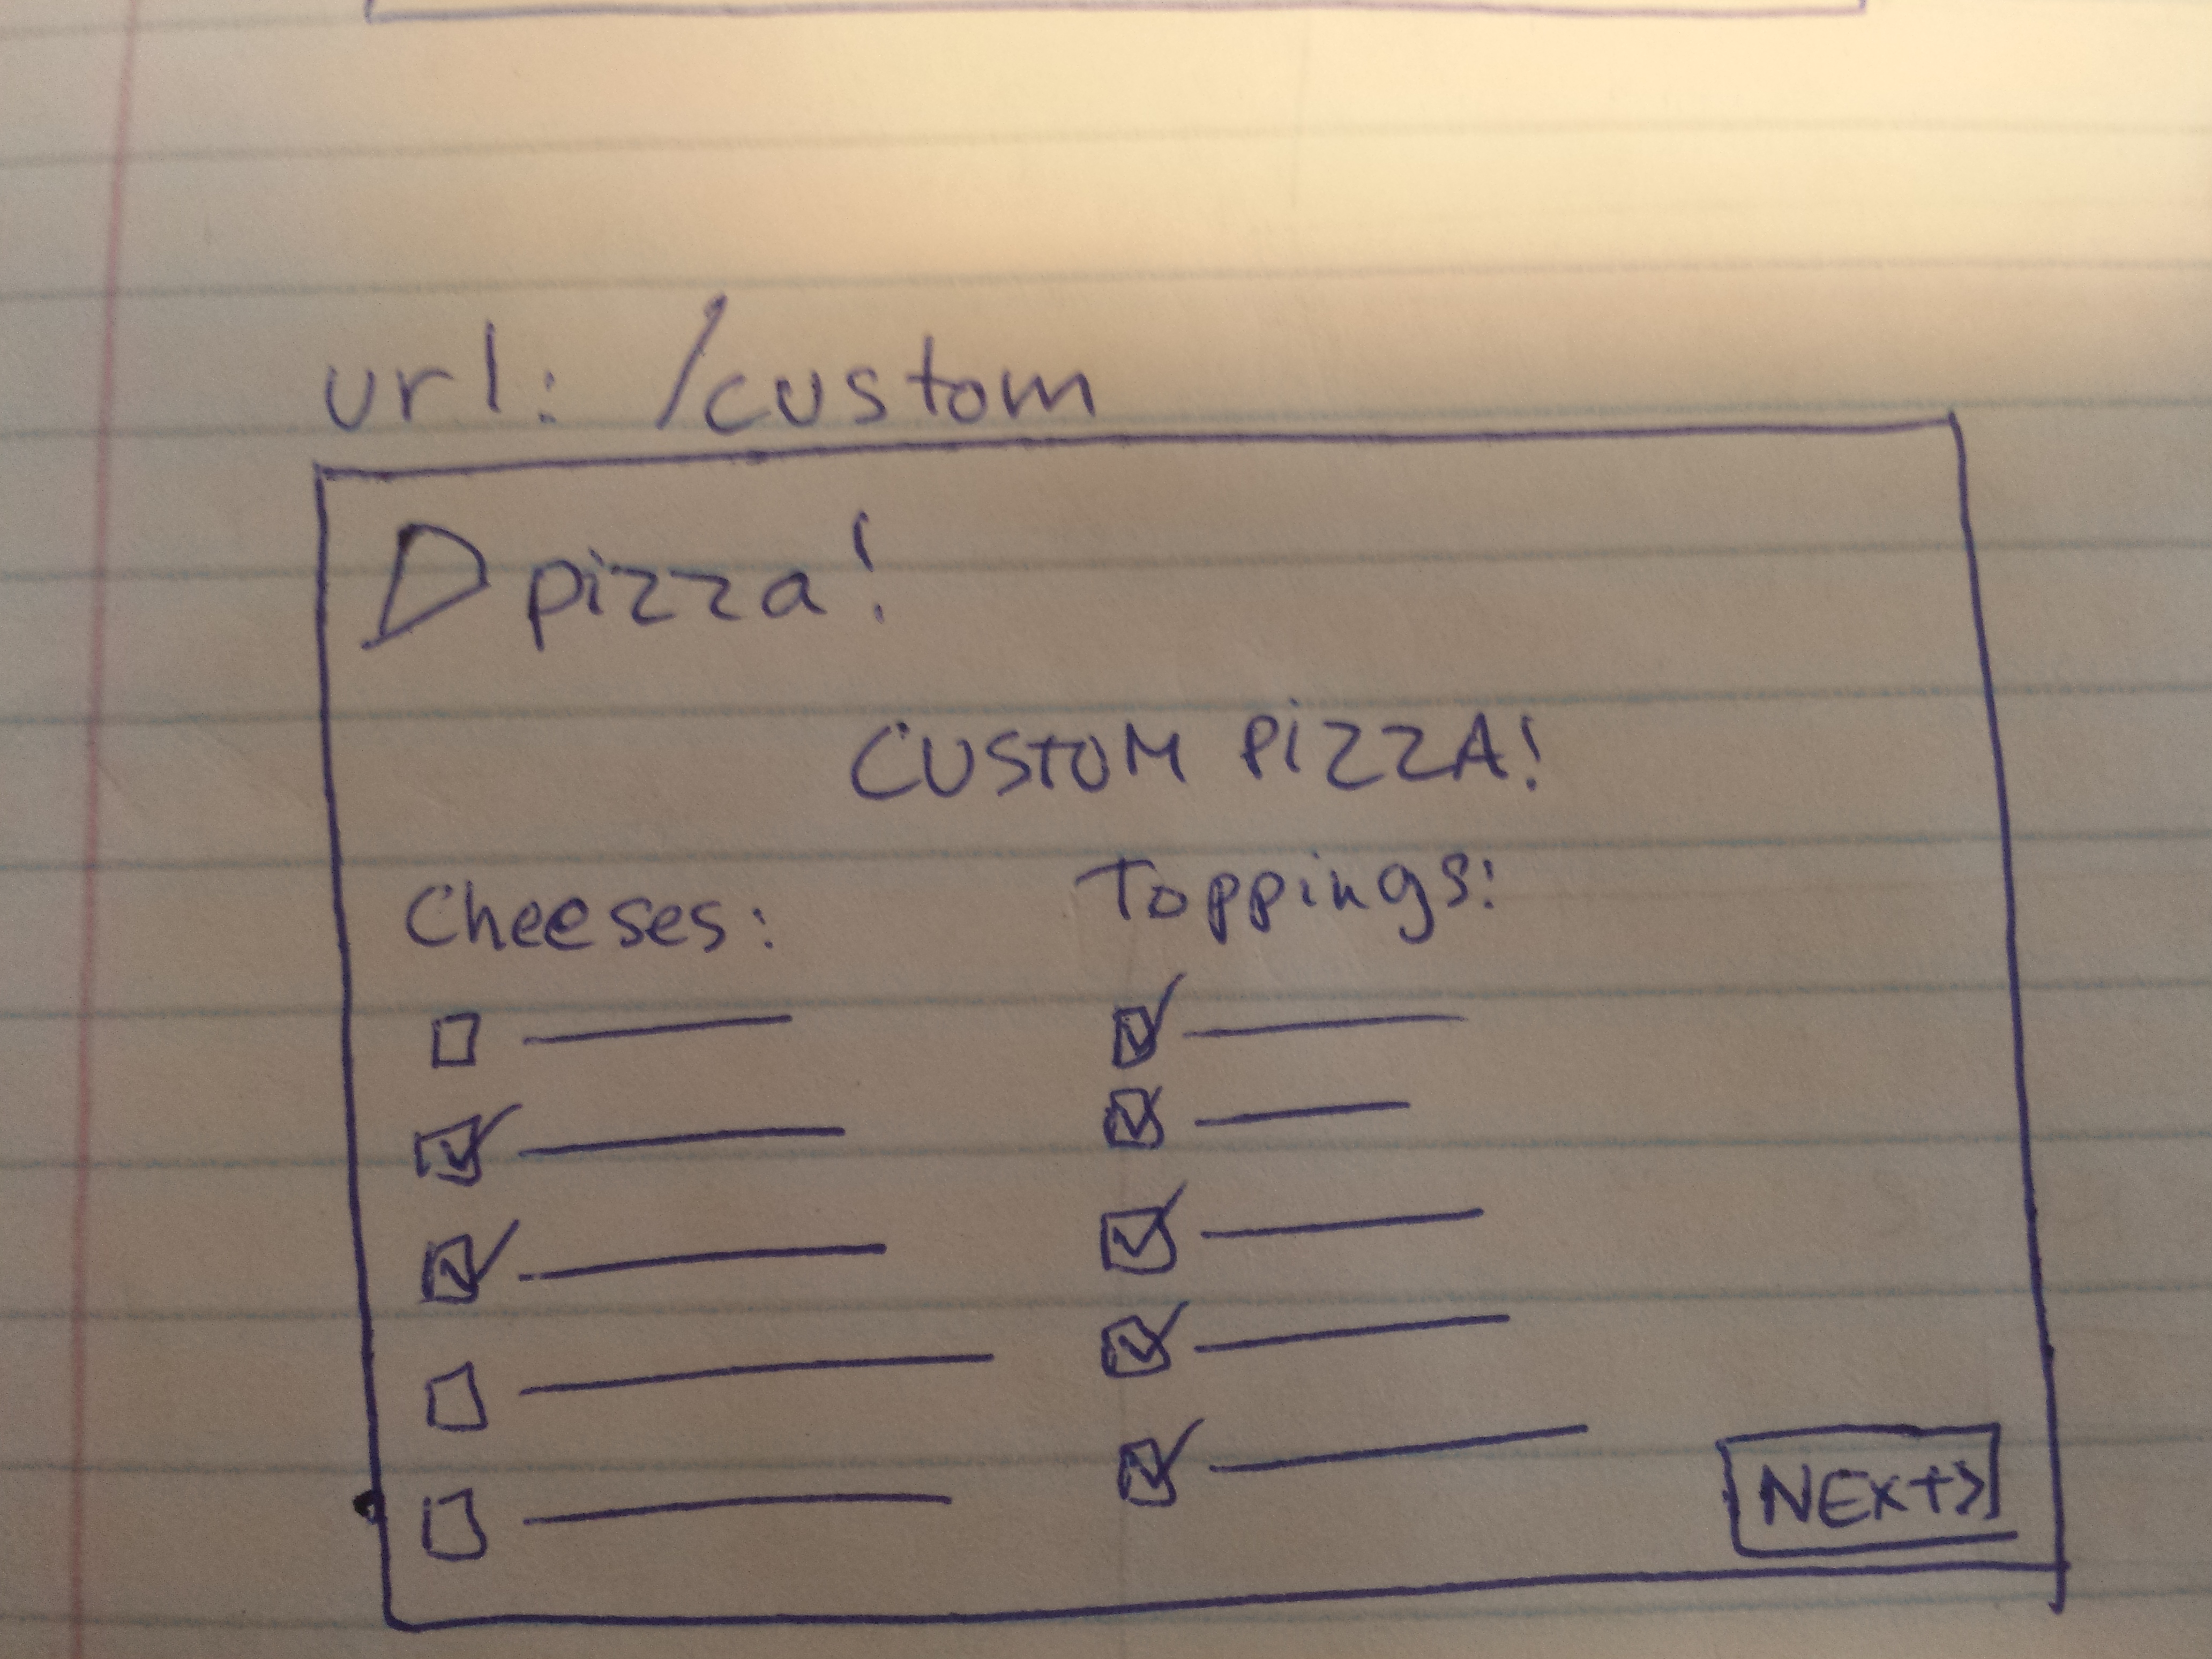 url: /custom
pizza!
CUSTOM PIZZA!
Cheeses:
Toppings:
NEXT->